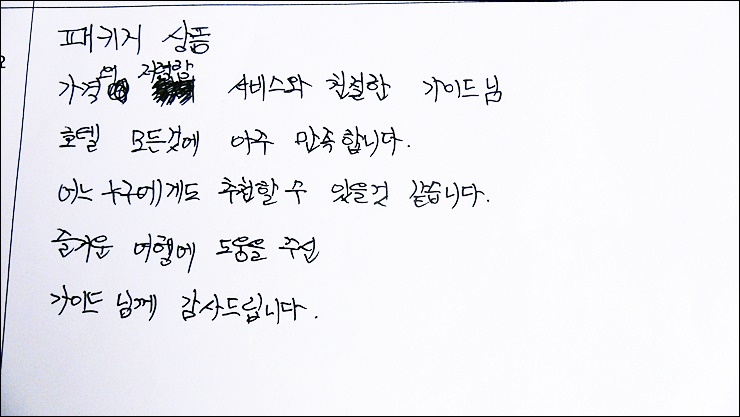 패키지 상품
가격의 저렴함 서비스와 친절한 가이드님
호텔 모든것에 아주 만족합니다.
어느 누구에게도 추천할 수 있을것 같습니다.
즐거운 여행에 도움을 주신
가이드 님께 감사드립니다.